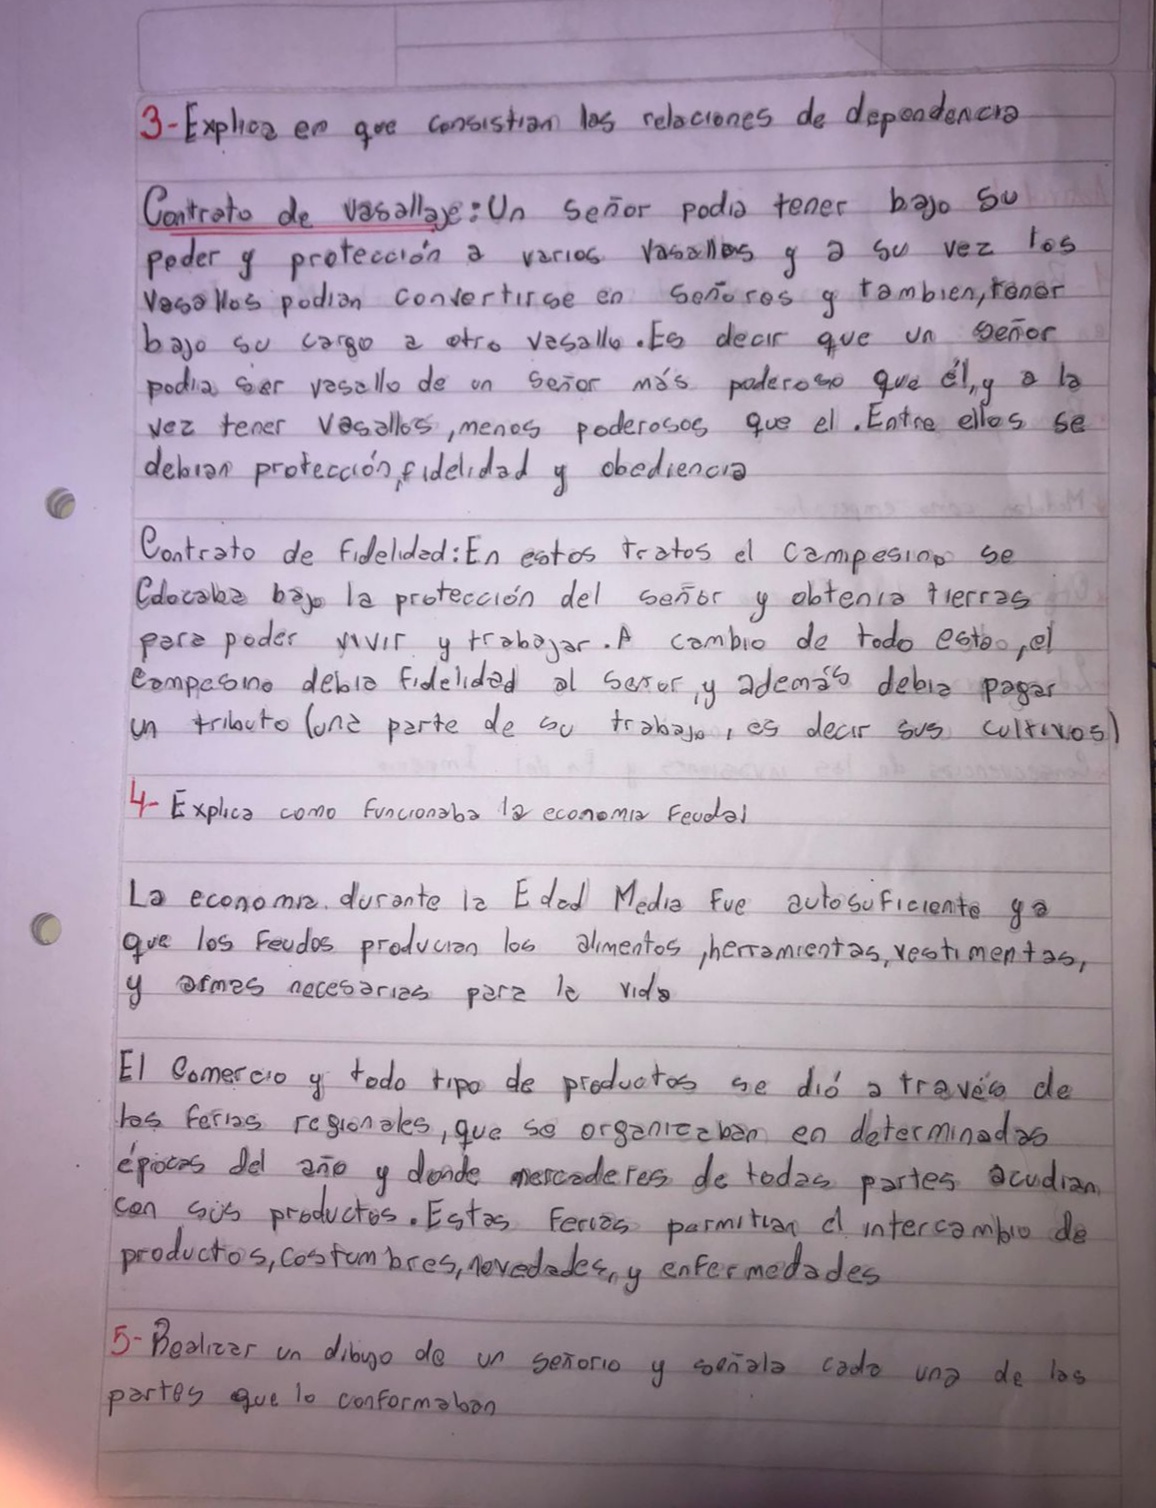 3-Explica en que consistian las relaciones de dependencia
Contrato de vasallaje: Un señor podia tener bajo su
poder y protección a varios vasallos y a su vez los
vasallos podian convertirse en señores y tambien, tener
bajo su cargo a otro vasallo. Es decir que un señor
podia ser vasallo de un señor más poderoso que él, y a la
vez tener vasallos, menos poderosos que el. Entre ellos se
debian protección, fidelidad y obediencia
Contrato de fidelidad: En estos tratos el campesino se
Colocaba bajo la protección del señor y obtenia tierras
para poder vivir y trabajar. A cambio de todo esto, el
campesino debia fidelidad al señor, y además debia pagar
un tributo (una parte de su trabajo, es decir sus cultivos)
4- Explica como funcionaba la economia Feudal
La economia durante la Edad Media fue autosuficiente ya
que los feudos producian los alimentos, herramientas, vestimentas,
y armas necesarias para la vida
El Comercio y todo tipo de productos se dió a través de
las ferias regionales, que se organizaban en determinadas
épocas del año y donde mercaderes de todas partes acudian
con sus productos. Estas Ferias permitian el intercambio de
productos, costumbres, novedades, y enfermedades
5- Realizar un dibujo de un señorio y señala cada una de las
partes que lo conformaban